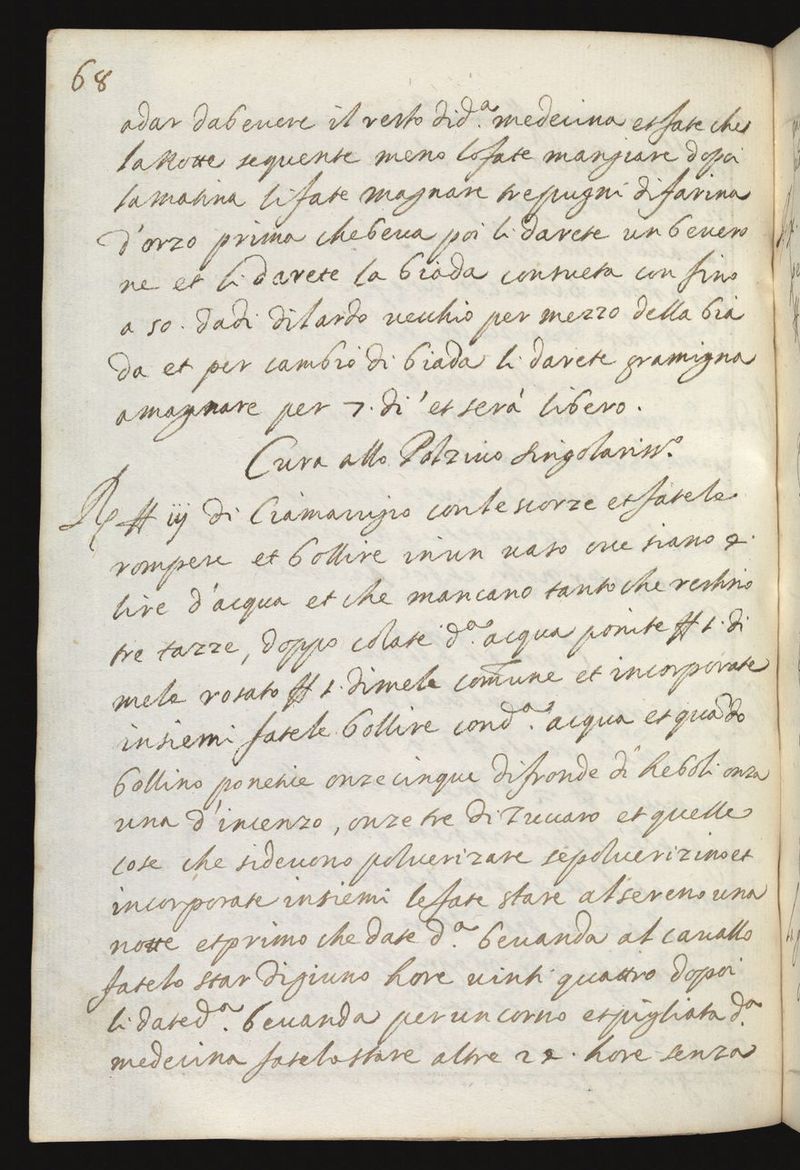 68
a dar da bevere il resto di d.ª medecina et fate che
la notte sequente meno lo fate mangiare dopoi
la matina li fate magnare tre pugni di farina
d'orzo prima che beva poi li darete un bevero
ne et li darete la biada consueta con fino
a 50. dadi di lardo vecchio per mezzo della bia
da et per cambio di biada li darete gramigna
a magnare per 7. dì et serà libero.
Cura allo Polzivo singolariss.º
℞ ℔ iij di con le scorze et fatele
rompere et bollire in un vaso ove siano 4.
lire d'acqua et che mancano tanto che restino
tre tazze, doppo colate d.ª acqua ponite ℔ 1. di
mele rosato ℔ 1. di mele com̃une et incorporate
insiemi fatele bollire con d.ª acqua et quãdo
bollino ponetice onze cinque di fronde di heboli onza
una d'incenzo, onze tre di zuccaro et quelle
cose che si devono polverizare se polverizino et
incorporate insiemi le fate stare al sereno una
notte et primo che date d.ª bevanda al cavallo
fatelo star digiuno hore vinti quattro dopoi
li date d.ª bevanda per un corno et pigliata d.ª
medecina fatelo stare altre 24. hore senza